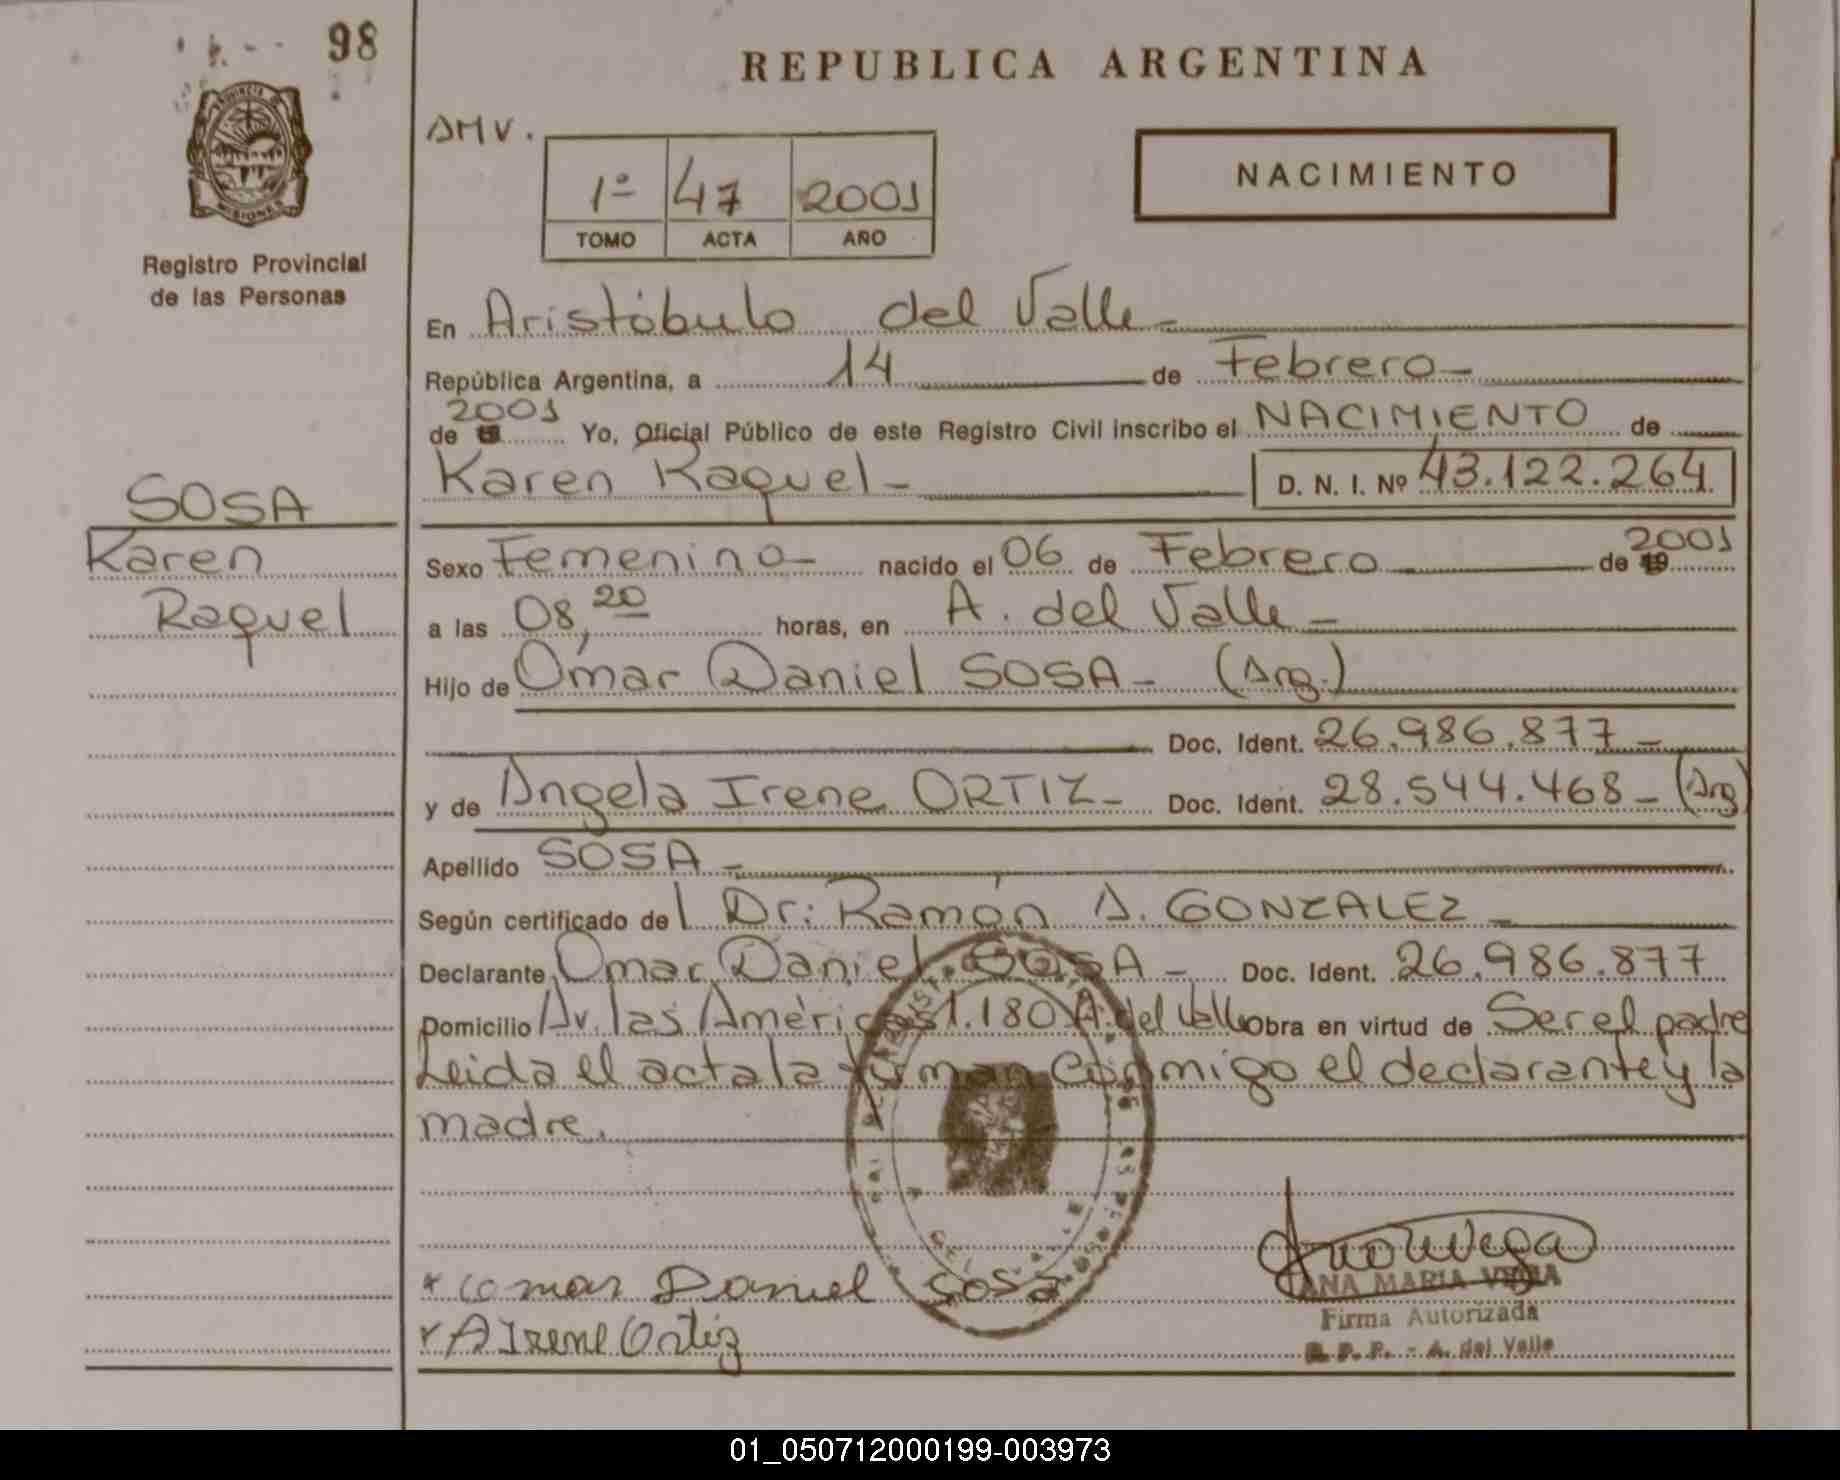 98
REPUBLICA ARGENTINA
PROVINCIA DE
MISIONES
Registro Provincial
de las Personas
AMV.
1º 47 2001
TOMO ACTA AÑO
NACIMIENTO
En Aristóbulo del Valle
República Argentina, a 14 de Febrero
de 2001 Yo, Oficial Público de este Registro Civil inscribo el NACIMIENTO de
Karen Raquel D. N. I. Nº 43.122.264
SOSA
Karen
Raquel
Sexo Femenino nacido el 06 de Febrero de 19 2001
a las 08,20 horas, en A. del Valle
Hijo de Omar Daniel SOSA (Arg.)
Doc. Ident. 26.986.877
y de Angela Irene ORTIZ Doc. Ident. 28.544.468 (Arg)
Apellido SOSA
Según certificado del Dr: Ramón A. GONZALEZ
Declarante Omar Daniel SOSA Doc. Ident. 26.986.877
Domicilio Av. las Américas 1.180 A. del Valle Obra en virtud de Ser el padre
Leida el acta la firman conmigo el declarante y la
madre.
Omar Daniel Sosa
A Irene Ortiz
ANA MARIA VEGA
Firma Autorizada
R. P. P. - A. del Valle
01_050712000199-003973